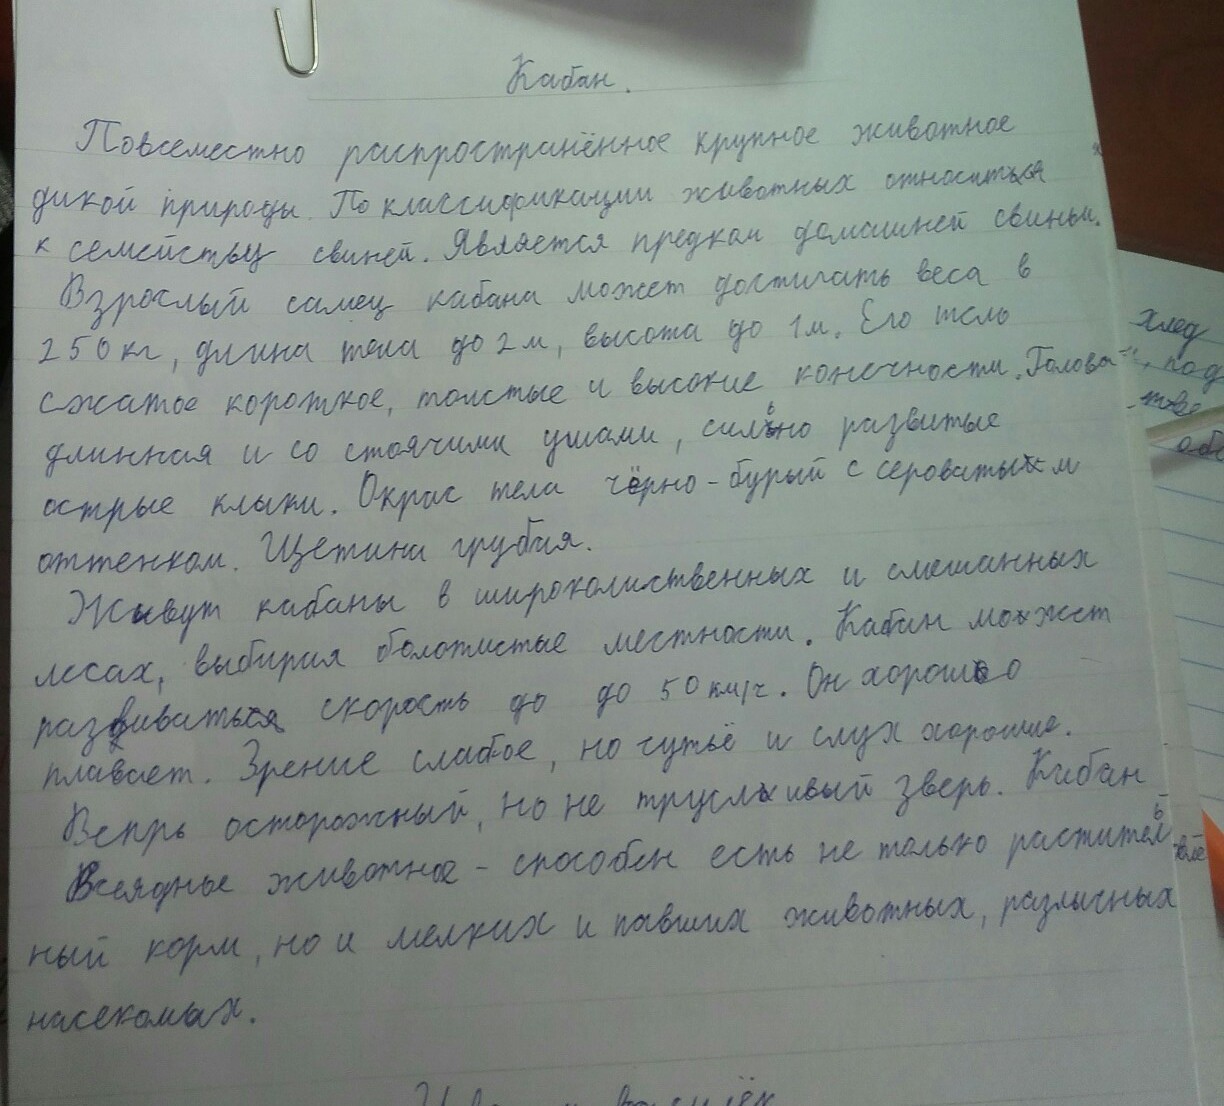 Кабан.
Повсеместно распространённое крупное животное
дикой природы. По классификации животных относиться
к семейству свиней. Является предком домашней свиньи.
Взрослый самец кабана может достигать веса в
250 кг, длина тела до 2 м, высота до 1 м. Его тело
сжатое короткое, толстые и высокие конечности. Голова
длинная и со стоячими ушами, сильно развитые
острые клыки. Окрас тела чёрно-бурый с сероватым
оттенком. Щетина грубая.
Живут кабаны в широколиственных и смешанных
лесах, выбирая болотистые местности. Кабан может
развивать скорость до до 50 км/ч. Он хорошо
плавает. Зрение слабое, но чутьё и слух хорошие.
Вепрь осторожный, но не трусливый зверь. Кабан
Всеядное животное - способен есть не только раститель
ный корм, но и мелких и павших животных, различных
насекомых.
след
, под
обе